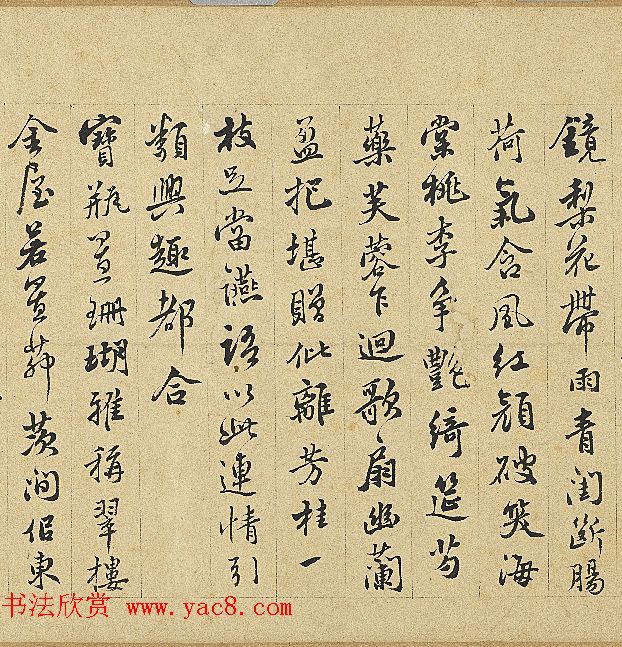 鏡梨花帶雨青閨斷腸
荷氣含風紅顏破笑海
棠桃李爭艷綺筵芍
藥芙蓉乍迴歌扇幽蘭
盈把堪贈仳離芳桂一
枝足當讌語以此連情引
類興趣都合
寶瓶置珊瑚雅稱翠樓
金屋若置茆茨澗侶東
书法欣赏 www.yac8.com